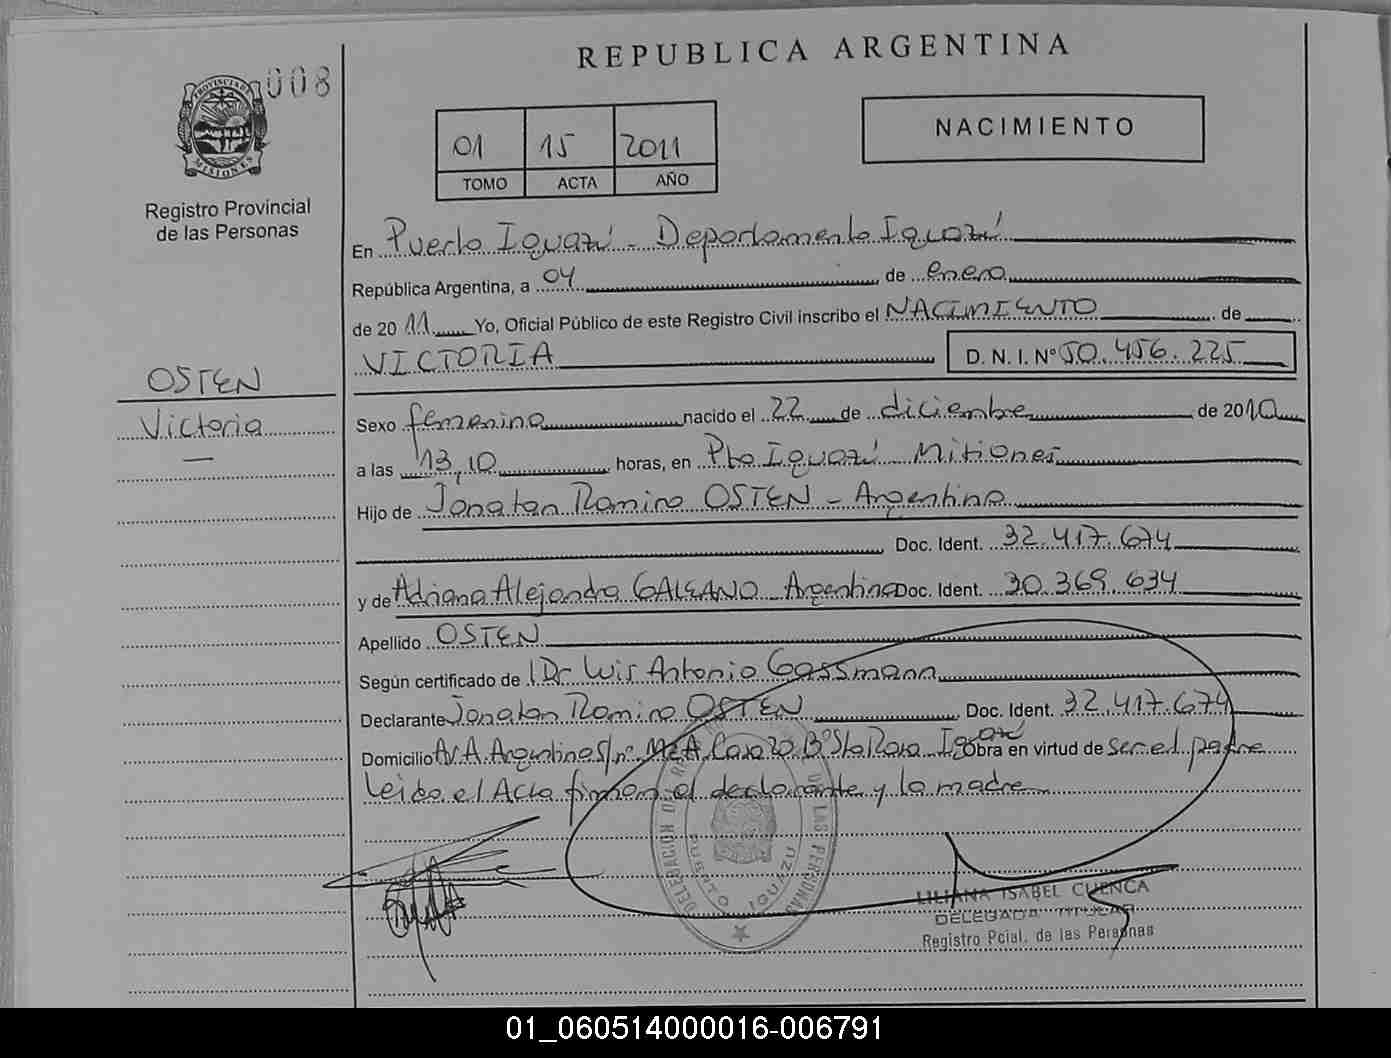 REPUBLICA ARGENTINA
008
PROVINCIA DE
MISIONES
Registro Provincial
de las Personas
01 15 2011
TOMO ACTA AÑO
NACIMIENTO
En Puerto Iguazú - Departamento Iguazú
República Argentina, a 04 de enero
de 2011 Yo, Oficial Público de este Registro Civil inscribo el NACIMIENTO de
VICTORIA D. N. I. Nº 50.456.225
OSTEN
Victoria
Sexo femenino nacido el 22 de diciembre de 2010
a las 13,10 horas, en Pto Iguazú Misiones
Hijo de Jonatan Ramiro OSTEN - Argentino
Doc. Ident. 32.417.674
y de Adriana Alejandra GALEANO - Argentina Doc. Ident. 30.369.634
Apellido OSTEN
Según certificado de Dr Luis Antonio Gassmann
Declarante Jonatan Ramiro OSTEN Doc. Ident. 32.417.674
Domicilio Av. Argentina s/nº Mz A Casa 20 Bº Sta Rosa Iguazú Obra en virtud de ser el padre
Leída el Acta firman el declarante y la madre
DELEGACION DE LAS PERSONAS
PUERTO IGUAZU
LILIANA ISABEL CUENCA
DELEGADA TITULAR
Registro Pcial. de las Personas
01_060514000016-006791